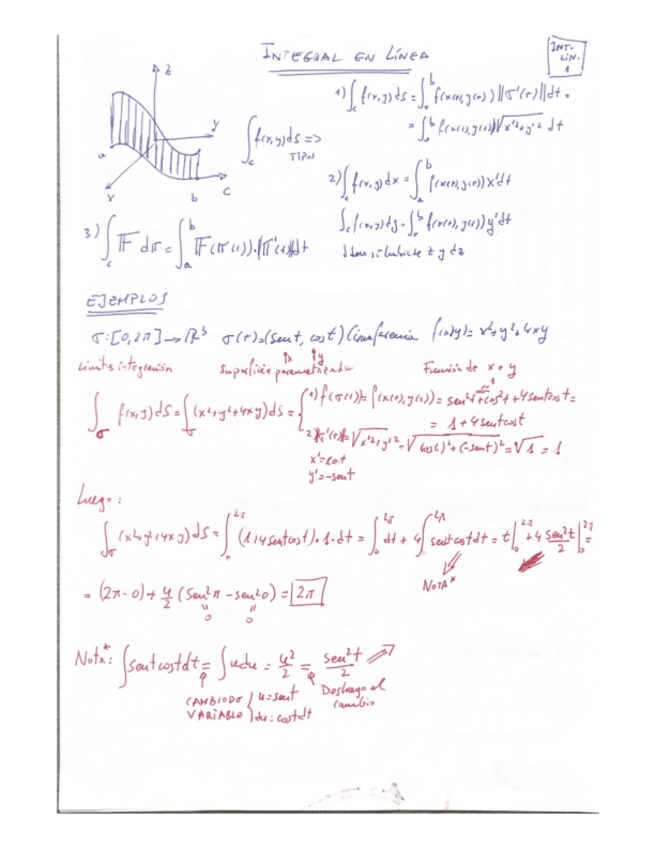 INTEGRAL EN LÍNEA
INT. LÍN. 1
z
y
x
a
b
C
∫_c f(x,y) ds => TIPOS
1) ∫_c f(x,y) ds = ∫_a^b f(x(t), y(t)) ||σ'(t)|| dt =
= ∫_a^b f(x(t), y(t)) √(x'²+y'²) dt
2) ∫_c f(x,y) dx = ∫_a^b f(x(t), y(t)) x' dt
∫_c f(x,y) dy = ∫_a^b f(x(t), y(t)) y' dt
Idem si hubiese z y dz
3) ∫_c 𝔽 dσ = ∫_a^b 𝔽(σ(t)) · σ'(t) dt
EJEMPLOS
σ: [0, 2π] → ℝ³ σ(t) = (sen t, cos t) Circunferencia f(x,y) = x²+y²+4xy
x y
Límites integración Superficie parametrizada Función de x e y
∫_σ f(x,y) dS = ∫_σ (x²+y²+4xy) dS = { 1) f(σ(t)) = f(x(t), y(t)) = sen²t + cos²t + 4 sen t cos t =
1
= 1 + 4 sen t cos t
2) ||σ'(t)|| = √(x'²+y'²) = √((cos t)²+(-sen t)²) = √1 = 1
x' = cos t
y' = -sen t
Luego:
∫_σ (x²+y²+4xy) dS = ∫_0^2π (1+4 sen t cos t) · 1 · dt = ∫_0^2π dt + 4 ∫_0^2π sen t cos t dt = t|_0^2π + 4 sen²t/2 |_0^2π =
NOTA*
= (2π-0) + 4/2 (sen²π - sen²0) = 2π
0 0
Nota*: ∫ sen t cos t dt = ∫ u du = u²/2 = sen²t/2
CAMBIO DE VARIABLE { u = sen t
du = cos t dt
Deshago el cambio